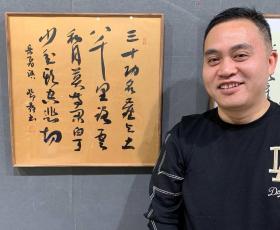 三十功名塵与土
八千里路雲
和月莫等閒白了
少年頭空悲切
岳飛詞